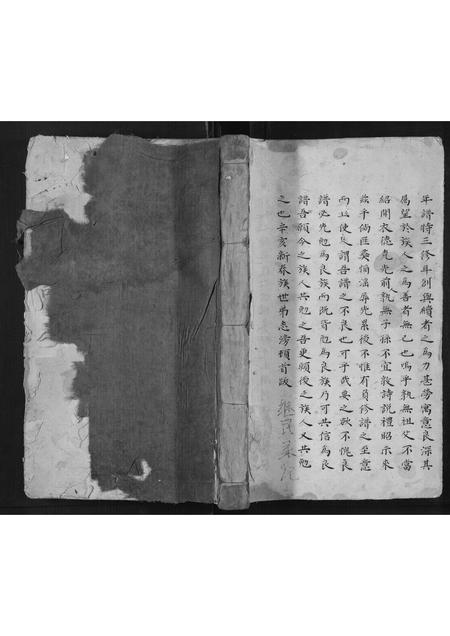 年譜特三修耳別與續者之為力甚勞寓意良深其
屬望於族人之為善者無已也嗚乎孰無祖父不當
紹聞衣德允光前孰無子孫不宜敦詩說禮昭示來
茲乎倘匪彝猶滛辱先累後不惟有負修譜之至意
而且使人謂吾譜之不良也可乎哉吾之耿不愧良
譜必先勉為良族而既皆勉為良族乃可共信為良
譜吾願今之族人共勉之吾更願後之族人又共勉
之也辛亥新春族世弟志滂頓首跋